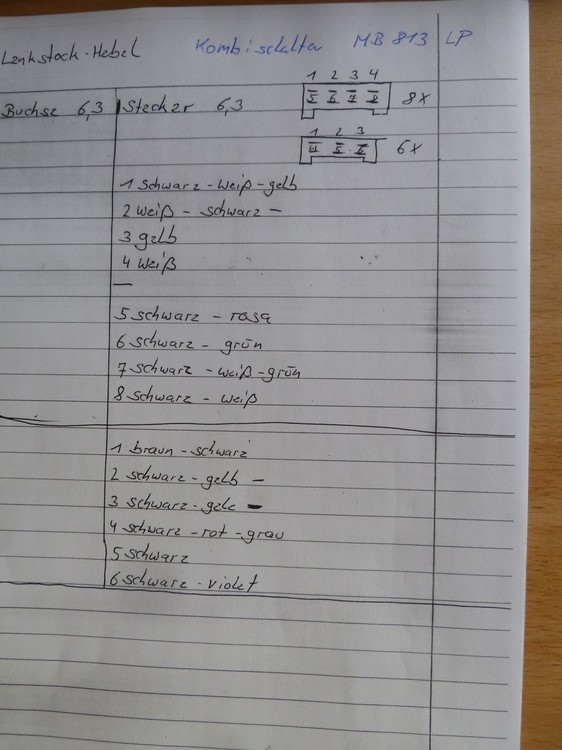 Lenkstock-Hebel Kombischalter MB 813 LP
1 2 3 4
Buchse 6,3 Stecker 6,3 5 6 7 8 8x
1 2 3
4 5 6 6x
1 schwarz-weiß-gelb
2 weiß - schwarz -
3 gelb
4 weiß
—
5 schwarz - rosa
6 schwarz - grün
7 schwarz - weiß-grün
8 schwarz - weiß
1 braun-schwarz
2 schwarz-gelb -
3 schwarz-gelb -
4 schwarz-rot-grau
5 schwarz
6 schwarz-violet